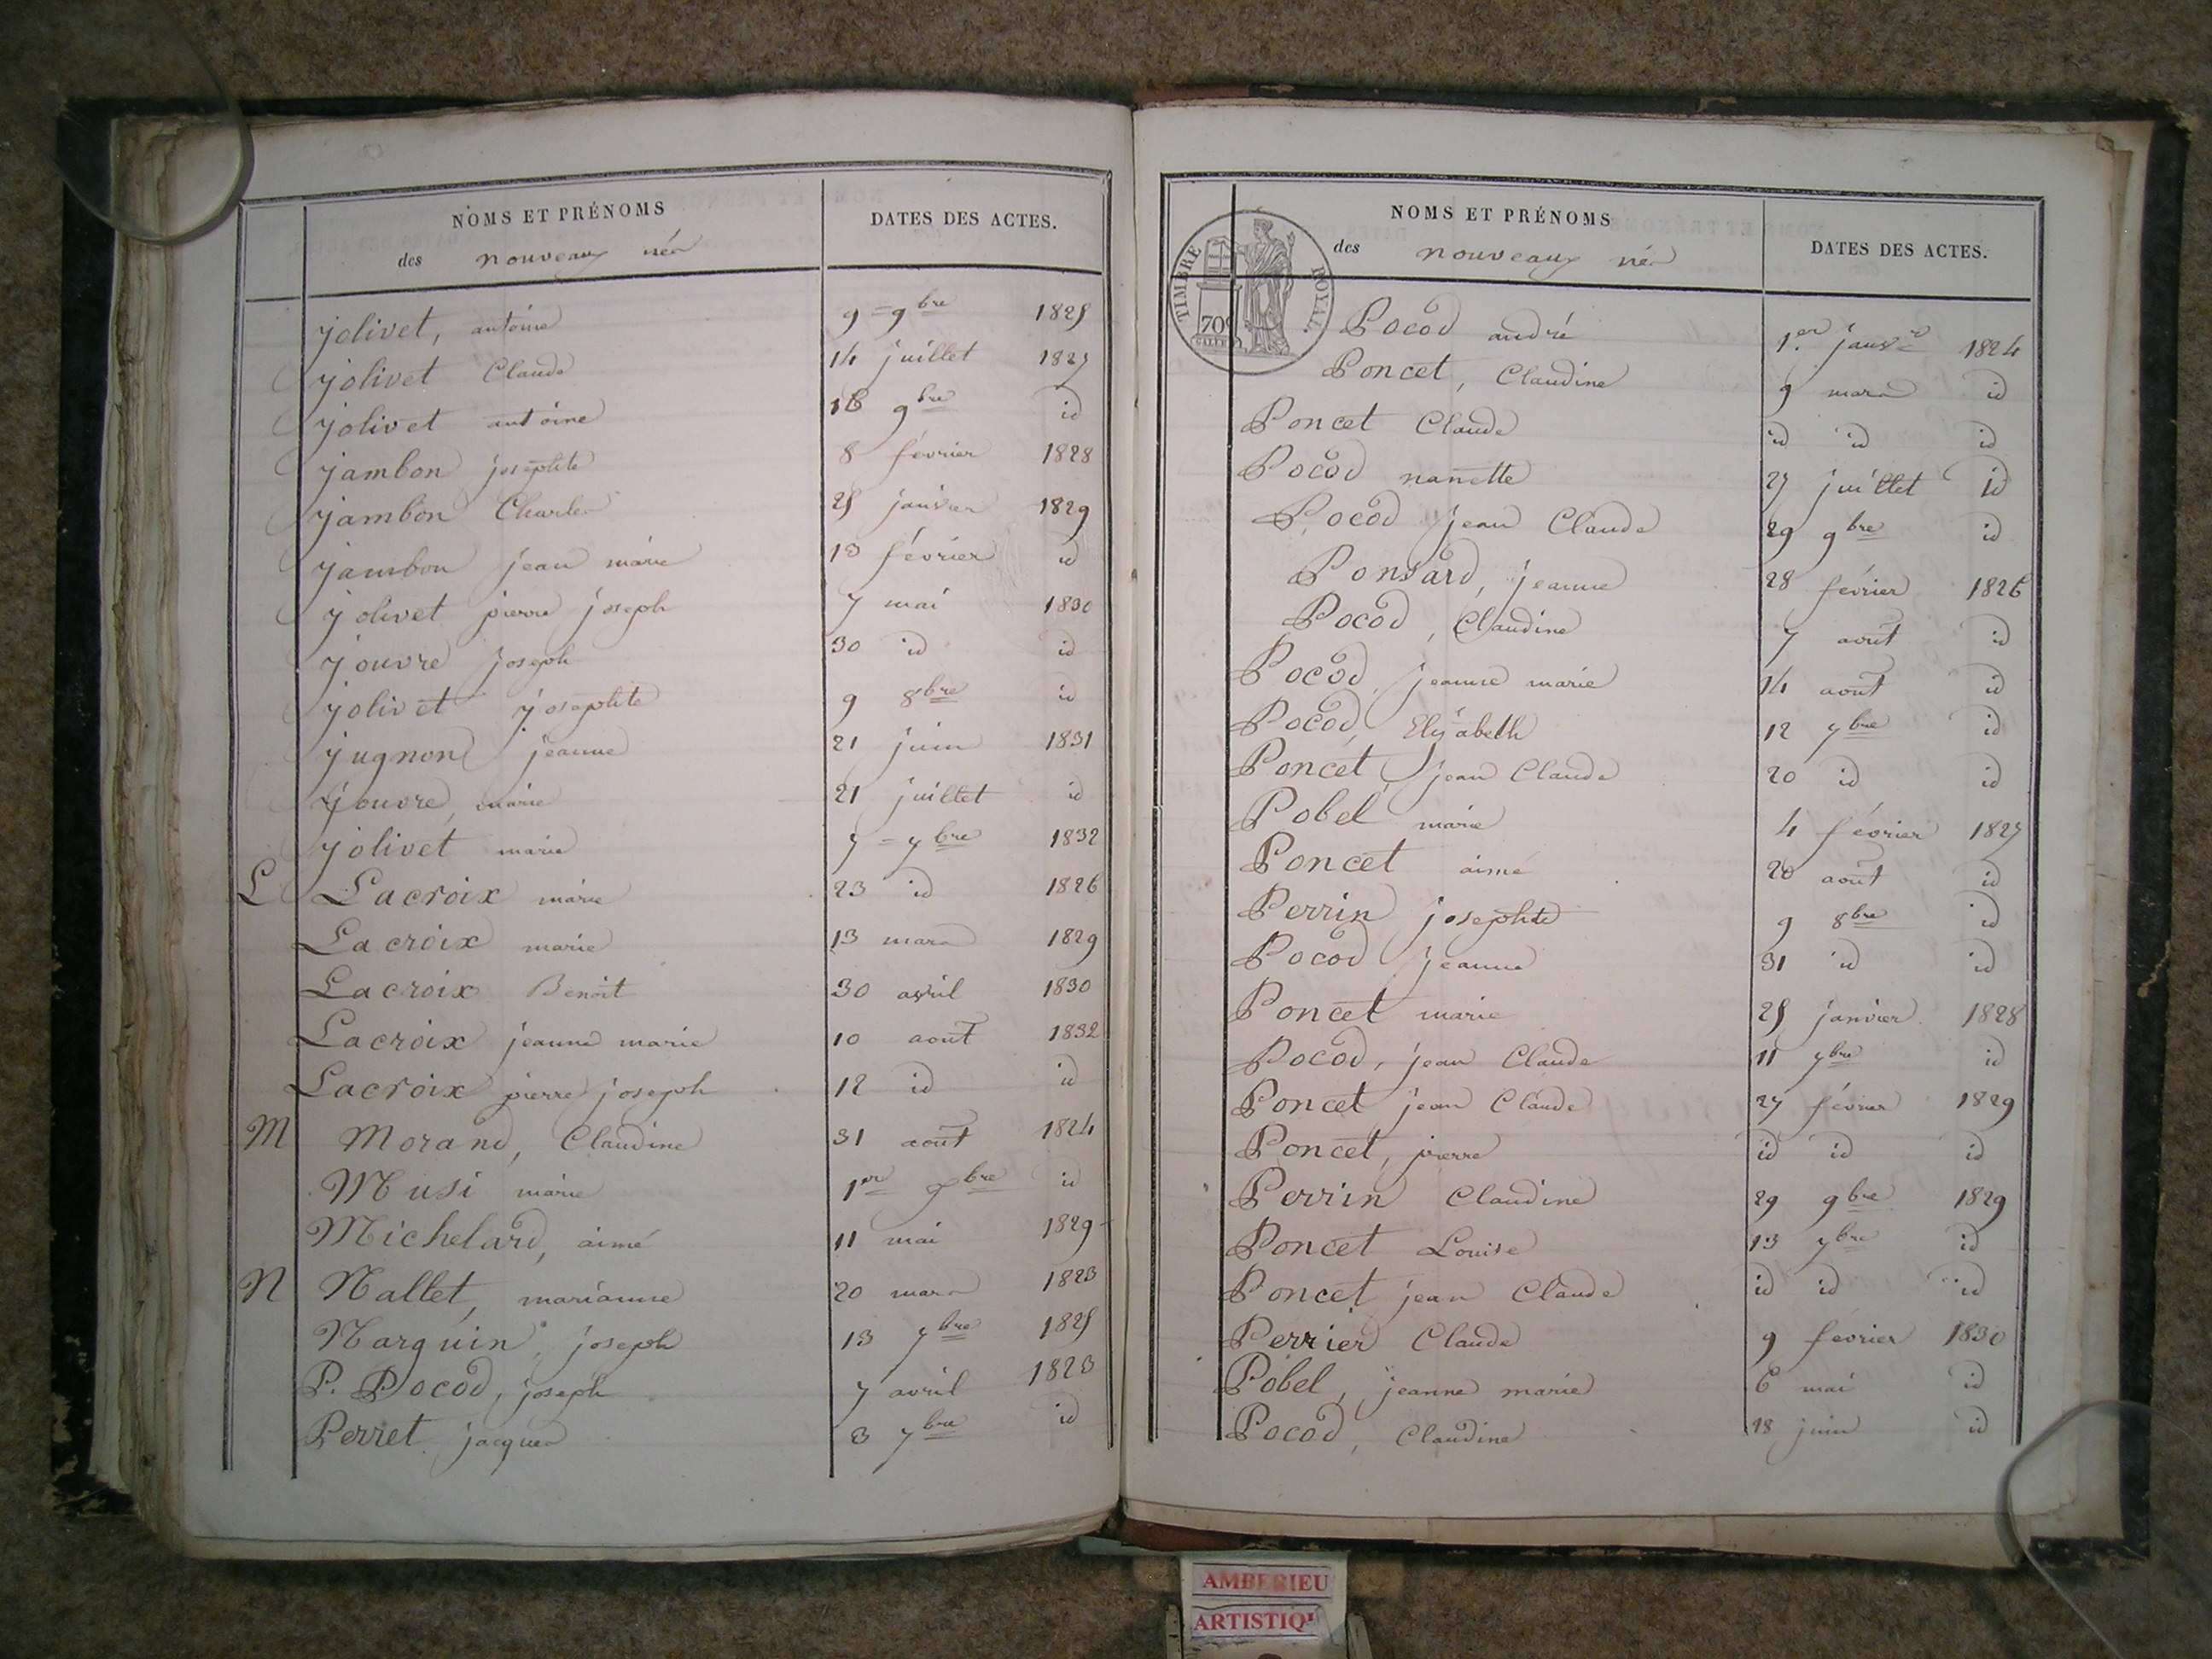 NOMS ET PRÉNOMS
des nouveaux nés
DATES DES ACTES.
jolivet, antoine 9 = 9bre 1825
jolivet Claude 14 juillet 1827
jolivet antoine 16 9bre id
jambon josephte 8 février 1828
jambon Charles 25 janvier 1829
jambon jean marie 13 février id
jolivet pierre joseph 7 mai 1830
jouvre joseph 30 id id
jolivet josephte 9 8bre id
jugnon jeanne 21 juin 1831
jouvre, marie 21 juillet id
jolivet marie 7 = 7bre 1832
L Lacroix marie 23 id 1826
Lacroix marie 13 mars 1829
Lacroix Benoit 30 avril 1830
Lacroix jeanne marie 10 aout 1832
Lacroix pierre joseph 12 id id
M Morand, Claudine 31 aout 1824
Musi marie 1er bre id
Michelard, aimé 11 mai 1829
N Nallet, marianne 20 mars 1823
Narguin, joseph 13 7bre 1825
P. Pocod, joseph 7 avril 1823
Perret jacques 3 7bre id
NOMS ET PRÉNOMS
des nouveaux nés
DATES DES ACTES.
TIMBRE ROYAL.
70c
Pocod andré 1er janvr 1824
Poncet, Claudine 9 mars id
Poncet Claude id id id
Pocod nanette 27 juillet id
Pocod jean Claude 29 9bre id
Ponsard, jeanne 28 février 1826
Pocod, Claudine 7 aout id
Pocod jeanne marie 14 aout id
Pocod, Elysabeth 12 7bre id
Poncet, jean Claude 20 id id
Pobel marie 4 février 1827
Poncet aimé 20 aout id
Perrin josephte 9 8bre id
Pocod jeanne 31 id id
Poncet marie 25 janvier 1828
Pocod, jean Claude 11 7bre id
Poncet jean Claude 27 février 1829
Poncet, pierre id id id
Perrin Claudine 29 9bre 1829
Poncet Louise 13 7bre id
Poncet jean Claude id id id
Perrier Claude 9 février 1830
Pobel, jeanne marie 6 mai id
Pocod, Claudine 18 juin id
AMBERIEU
ARTISTIQ